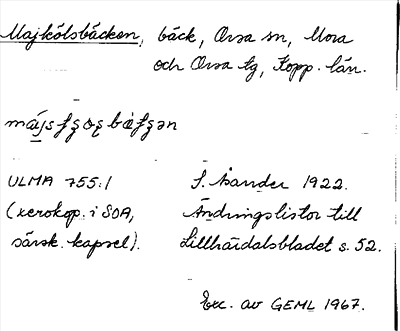 Majkölsbäcken, bäck, Orsa sn, Mora
och Orsa tg, Kopp. län.
ULMA 755:1
S. Isander 1922.
(xerokop. i SOA,
Ändringslistor till
särsk. kapsel).
Lillhärdalsbladet s. 52.
Exc. av GEML 1967.